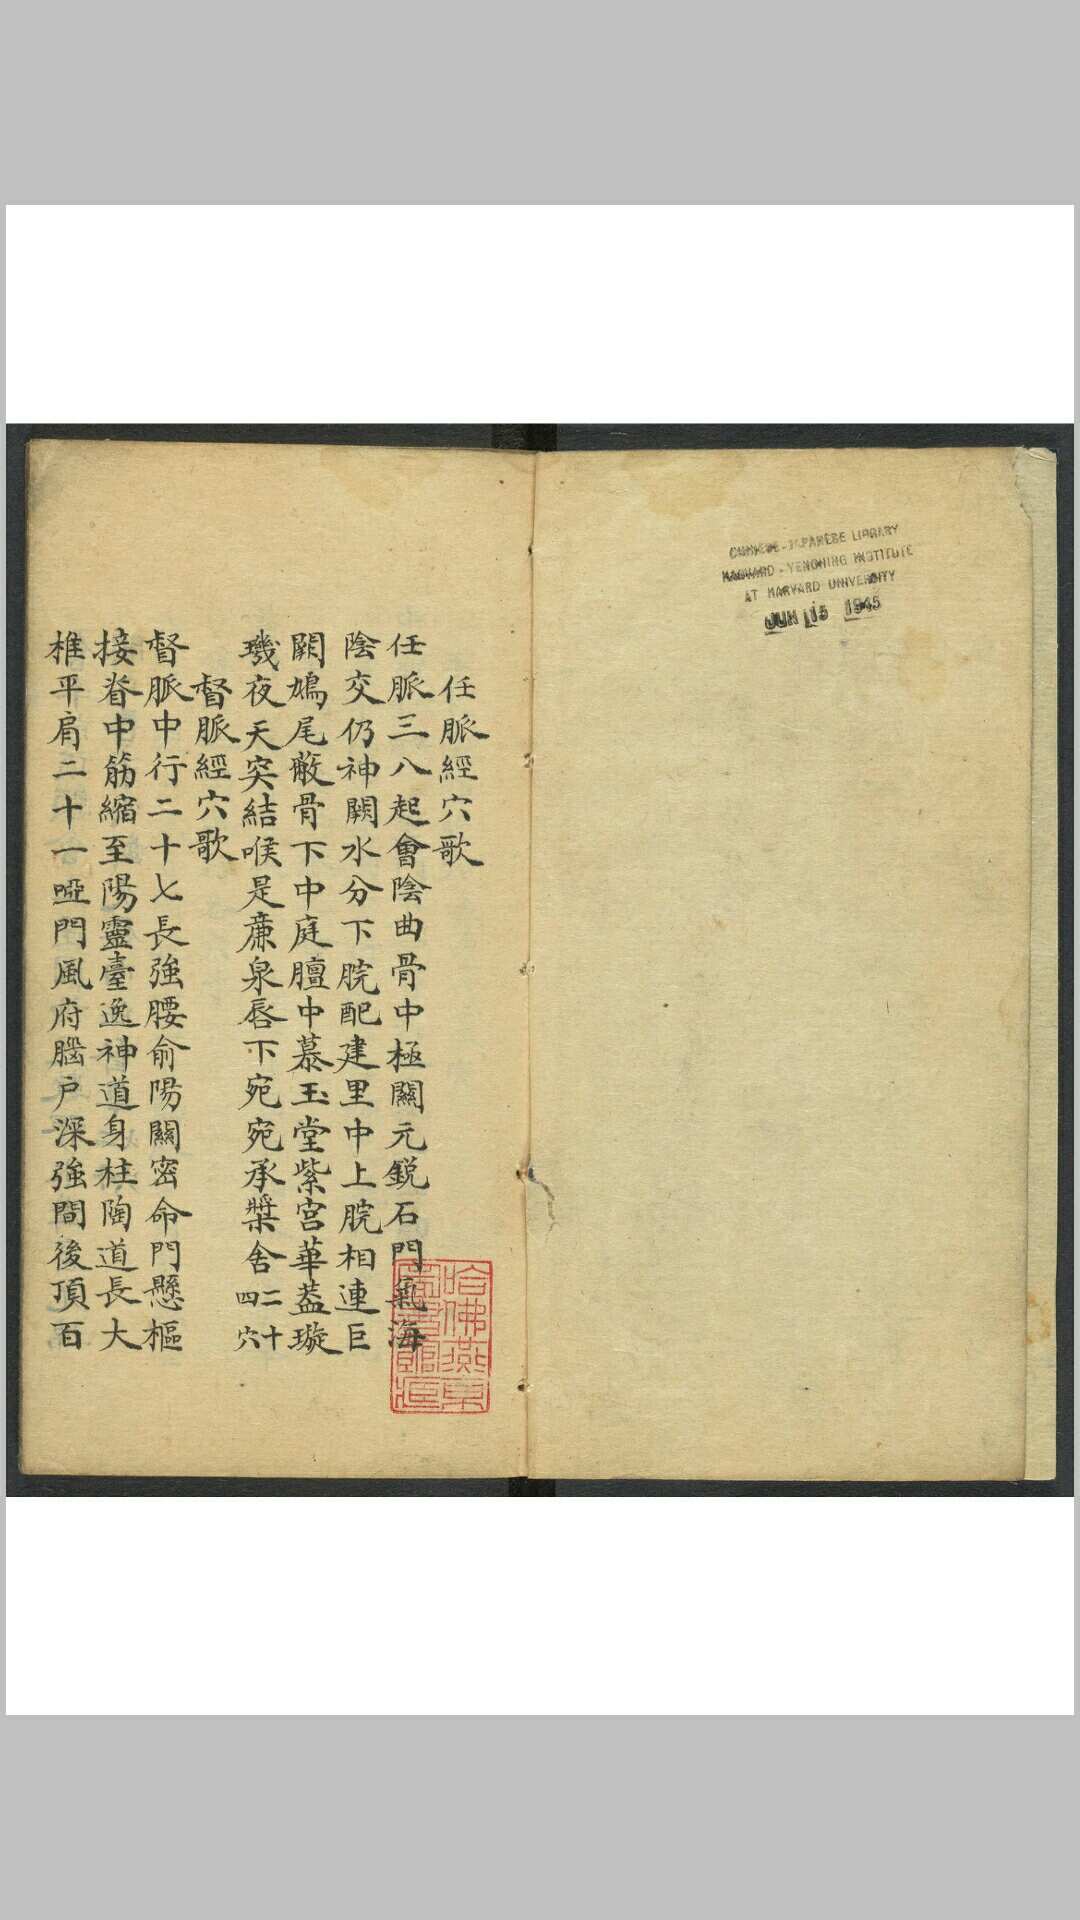 CHINESE-JAPANESE LIBRARY
HARVARD-YENCHING INSTITUTE
AT HARVARD UNIVERSITY
JUN 15 1945
任脈經穴歌
任脈三八起會陰曲骨中極關元銳石門氣海
陰交仍神闕水分下脘配建里中上脘相連巨
闕鳩尾蔽骨下中庭膻中慕玉堂紫宮華蓋璇
璣夜天突結喉是廉泉唇下宛宛承漿舍二十四穴
督脈經穴歌
督脈中行二十七長強腰俞陽關密命門懸樞
接脊中筋縮至陽靈臺逸神道身柱陶道長大
椎平肩二十一啞門風府腦戶深強間後頂百
哈佛燕京
圖書館藏